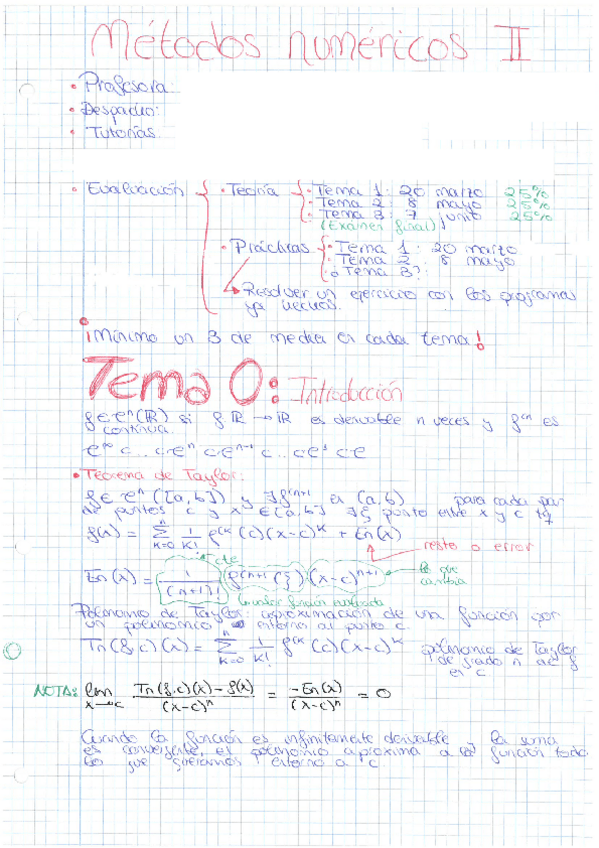 Métodos numéricos II
• Profesora:
• Despacho:
• Tutorías
• Evaluación { • Teoría { • Tema 1: 20 marzo 25%
• Tema 2: 8 mayo 25%
• Tema 3: 7 junio 25%
(Examen final)
• Prácticas { • Tema 1: 20 marzo
• Tema 2: 8 mayo
• ¿Tema 3?:
Resolver un ejercicio con los programas
ya hechos.
¡Mínimo un 3 de media en cada tema!
Tema 0: Introducción
f ∈ C^n(ℝ) si f: ℝ → ℝ es derivable n veces y f^(n es
continua.
C^∞ ⊂ ... ⊂ C^n ⊂ C^(n-1) ⊂ ... ⊂ C^1 ⊂ C
• Teorema de Taylor:
f ∈ C^n([a,b]) y ∃ f^(n+1 en (a,b) para cada par
puntos c y x ∈ [a,b] ∃ ξ punto entre x y c tq
f(x) = Σ_{k=0}^{n} 1/k! f^(k(c)(x-c)^k + En(x)
resto o error
cte
En(x) = 1/(n+1)! f^(n+1(ξ)(x-c)^(n+1)
lo que cambia
función
Polinomio de Taylor: aproximación de una función por
un polinomio entorno al punto c.
Tn(f,c)(x) = Σ_{k=0}^{n} 1/k! f^(k(c)(x-c)^k polinomio de Taylor
de grado n de f
en c
NOTA: lim_{x→c} (Tn(f,c)(x) - f(x))/(x-c)^n = -En(x)/(x-c)^n = 0
Cuando la función es infinitamente derivable y la suma
es convergente, el polinomio aproxima a la función todo
lo que queramos entorno a c